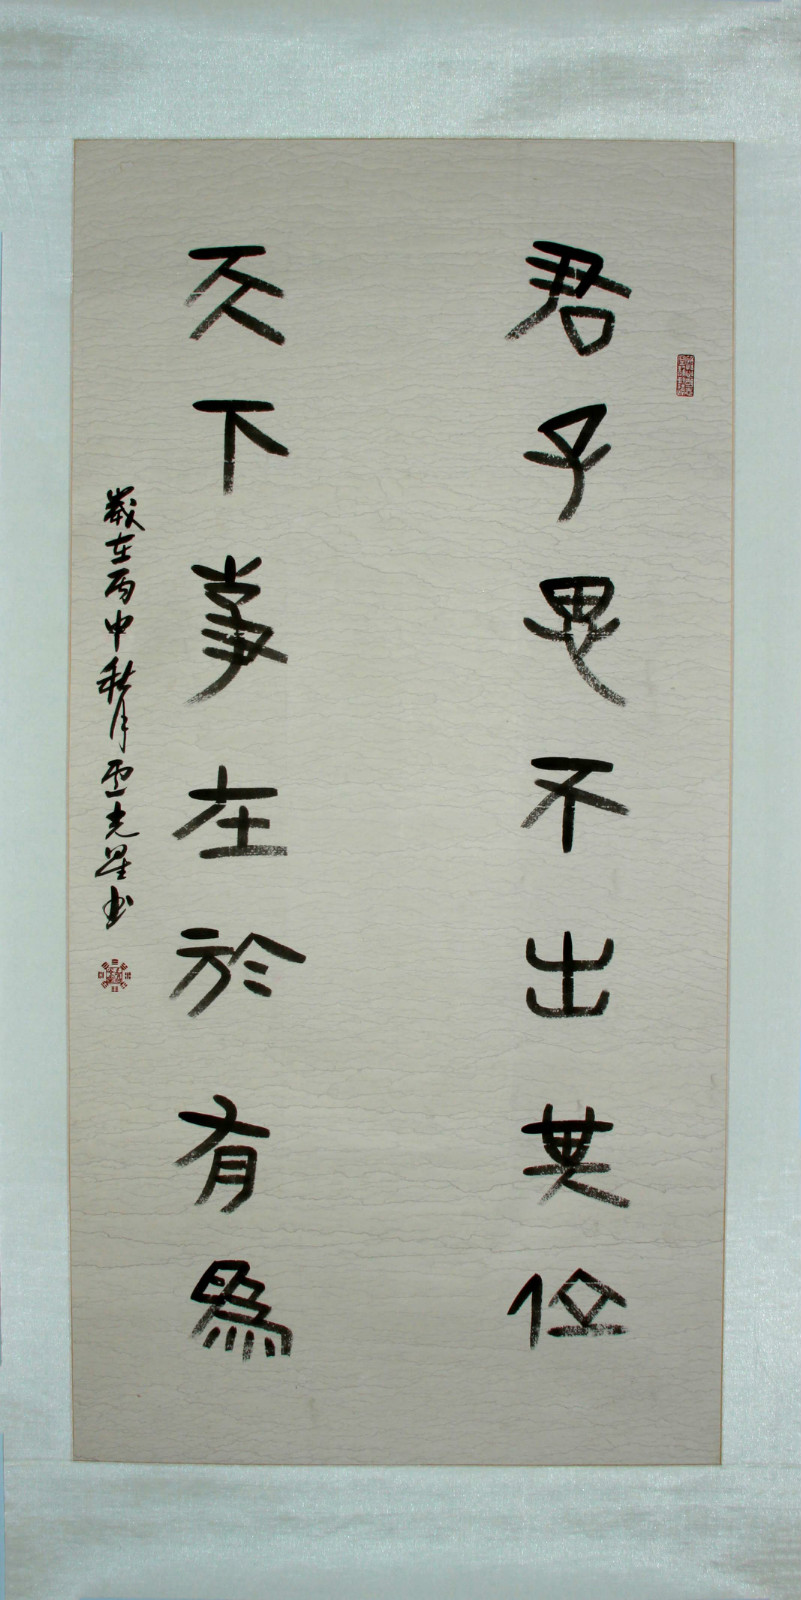 君子思不出其位
天下事在於有為
歲在丙申秋月雲光星书